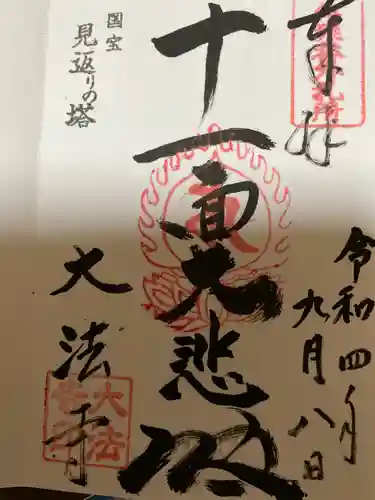 奉拝
令和四年
九月八日
十一面大悲殿
国宝
見返りの塔
大法寺